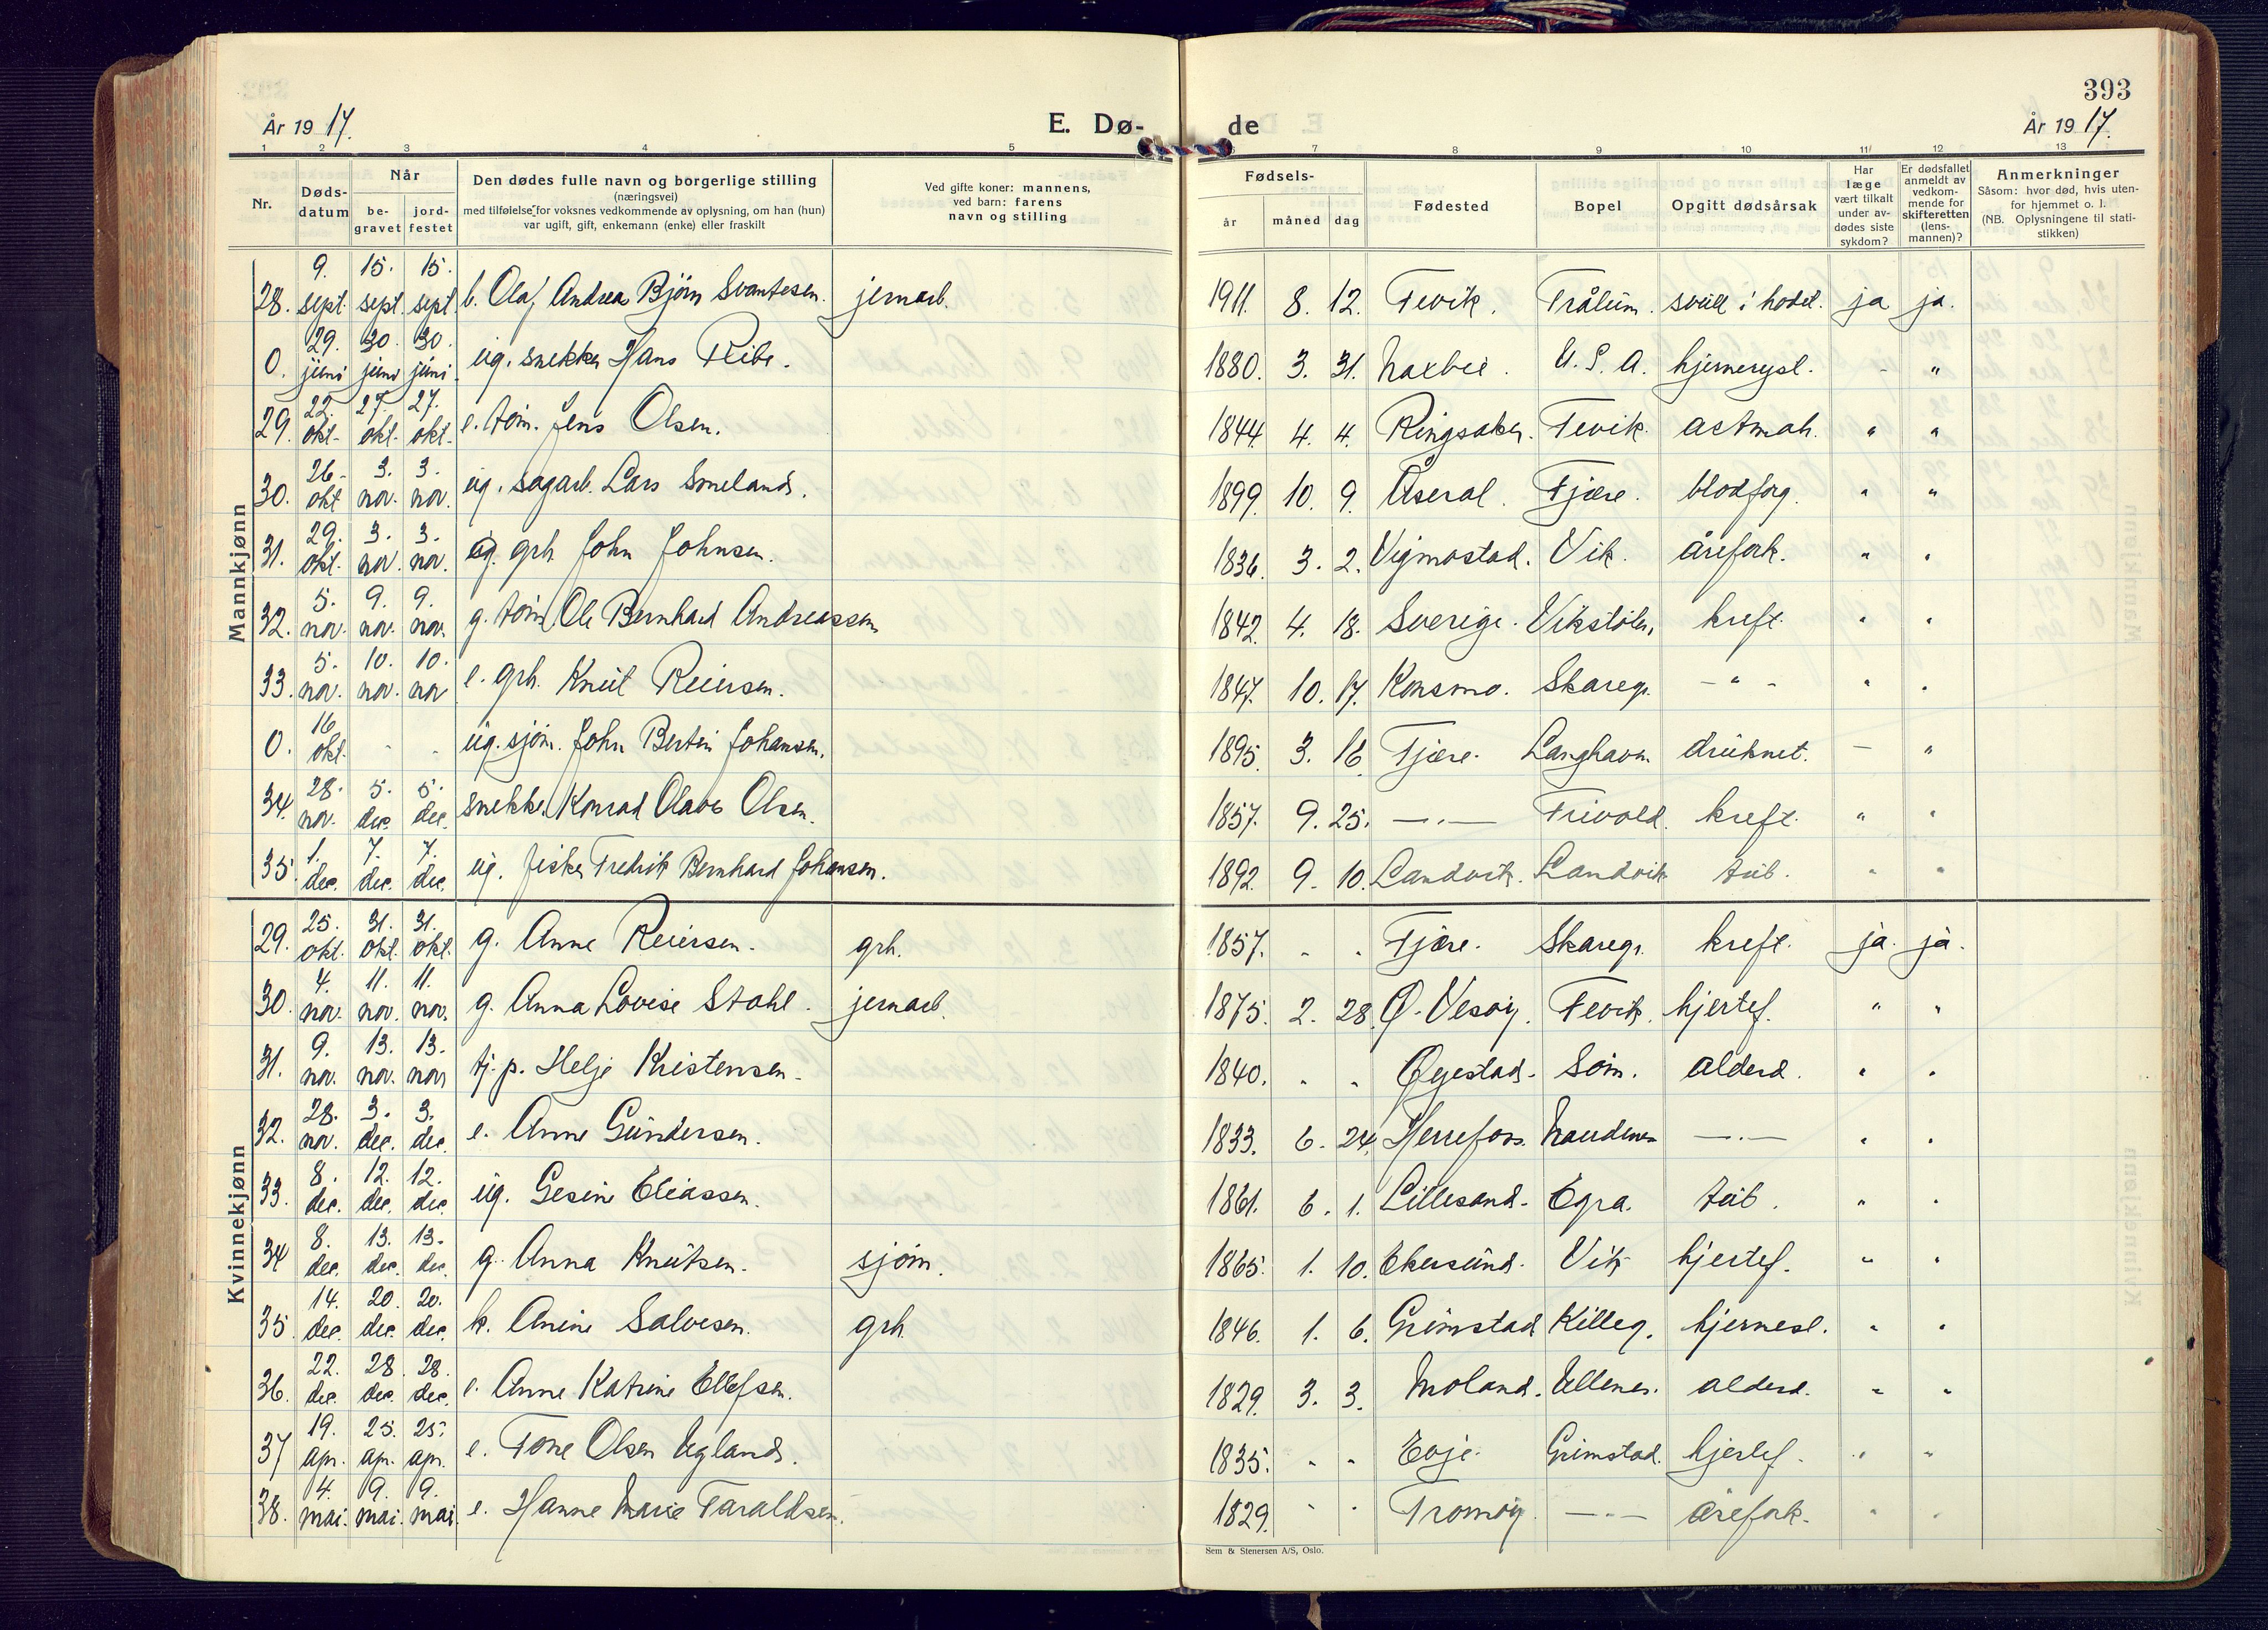 393
År 19 17.
E. Dø-
de
År 19 17.
1 2 3 4 5 6 7 8 9 10 11 12 13
Nr.
Døds-
datum
Når
be-
gravet
jord-
festet
Den dødes fulle navn og borgerlige stilling
(næringsvei)
med tilføielse for voksnes vedkommende av oplysning, om han (hun)
var ugift, gift, enkemann (enke) eller fraskilt
Ved gifte koner: mannens,
ved barn: farens
navn og stilling
Fødsels-
år måned dag
Fødested
Bopel
Opgitt dødsårsak
Har
læge
vært tilkalt
under av-
dødes siste
sykdom?
Er dødsfallet
anmeldt av
vedkom-
mende for
skifteretten
(lens-
mannen)?
Anmerkninger
Såsom: hvor død, hvis uten-
for hjemmet o. l.
(NB. Oplysningene til stati-
stikken)
Mannkjønn
28. 9. sept. 15. sept. 15. sept. b. Olaf Andreas Bjørn Svantesen. jernarb. 1911. 8. 12. Fevik. Trålum. svull i hodet. ja ja.
0. 29. juni 30 juni 30. juni. ug. snekker Hans Ribe. 1880. 3. 31. U. S. A. hjernerysl. - "
29. 22. okt. 27. okt. 27. okt. e. tøm. Jens Olsen. 1844 4. 4. Ringsaker. Fevik. astmah. " "
30. 26. okt 3. nov. 3. nov. ug. sagarb. Lars Smeland. 1899. 10. 9. Åseral. Fjære. blodforg. " "
31. 29. okt. 3. nov. 3. nov. g. grh. John Johnsen. 1836. 3. 2. Vigmostad. Vik. årefork. " "
32. 5. nov. 9. nov. 9. nov. g. tøm. Ole Bernhard Andreassen 1842. 4. 18. Sverige. Vikstølen, kreft. " "
33. 5. nov. 10. nov. 10. nov e. grh. Knut Reiersen. 1847. 10. 17. Konsmo. Skaregr. - " - " "
0. 16 okt. - - ug. sjøm. John Bertin Johansen. 1895. 3. 16 Fjære. Langhavn. druknet. - "
34. 28. nov. 5. dec. 5. dec. snekker Konrad Olaus Olsen. 1857. 9. 25. —.— Frivold. kreft. " "
35. 1. dec. 7. dec. 7. dec. ug. fisker Fredrik Bernhard Johansen. 1892. 9. 10. Landvik. Landvik tub. " "
Kvinnekjønn
29. 25. okt. 31. okt. 31. okt. g. Anne Reiersen. grh. 1857. - - Fjære. Skaregr. kreft. ja. ja.
30. 4. nov. 11. nov. 11. nov. g. Anna Lovise Stahl. jernarb. 1875. 2. 28. Ø. Vesøy. Fevik. hjertef. " "
31. 9. nov. 13. nov. 13. nov tj. p. Helje Kristensen. 1840. - - Øyestad. Søm. alderd. " "
32. 28. nov. 3. dec. 3. dec. e. Anne Gundersen. 1833. 6. 24. Herrefoss. Naudenes —.— " "
33. 8. dec. 12. dec. 12. dec. ug. Gesine Eliassen. 1861. 6. 1. Lillesand. Egra. tub. " "
34 8. dec. 13. dec. 13. dec. g. Anna Knutsen. sjøm. 1865. 1. 10. Ekersund. Vik hjertef. " "
35. 14. dec. 20. dec. 20. dec. k. Anine Salvesen. grh. 1846. 1. 6. Grimstad Killeg. hjernesl. " "
36. 22. dec. 28. dec. 28. dec. e. Anne Katrine Ellefsen. 1829. 3. 3. Moland. Ullenes. alderd. " "
37 19. apr. 25. apr. 25. apr. e. Tone Olsen Ugland. 1835. - - Evje. Grimstad. hjertef. " "
38. 4. mai. 9. mai. 9. mai. e. Hanne Marie Taraldsen. 1829. - - Tromøy. —.— årefork. " "
Sem & Stenersen A/S, Oslo.